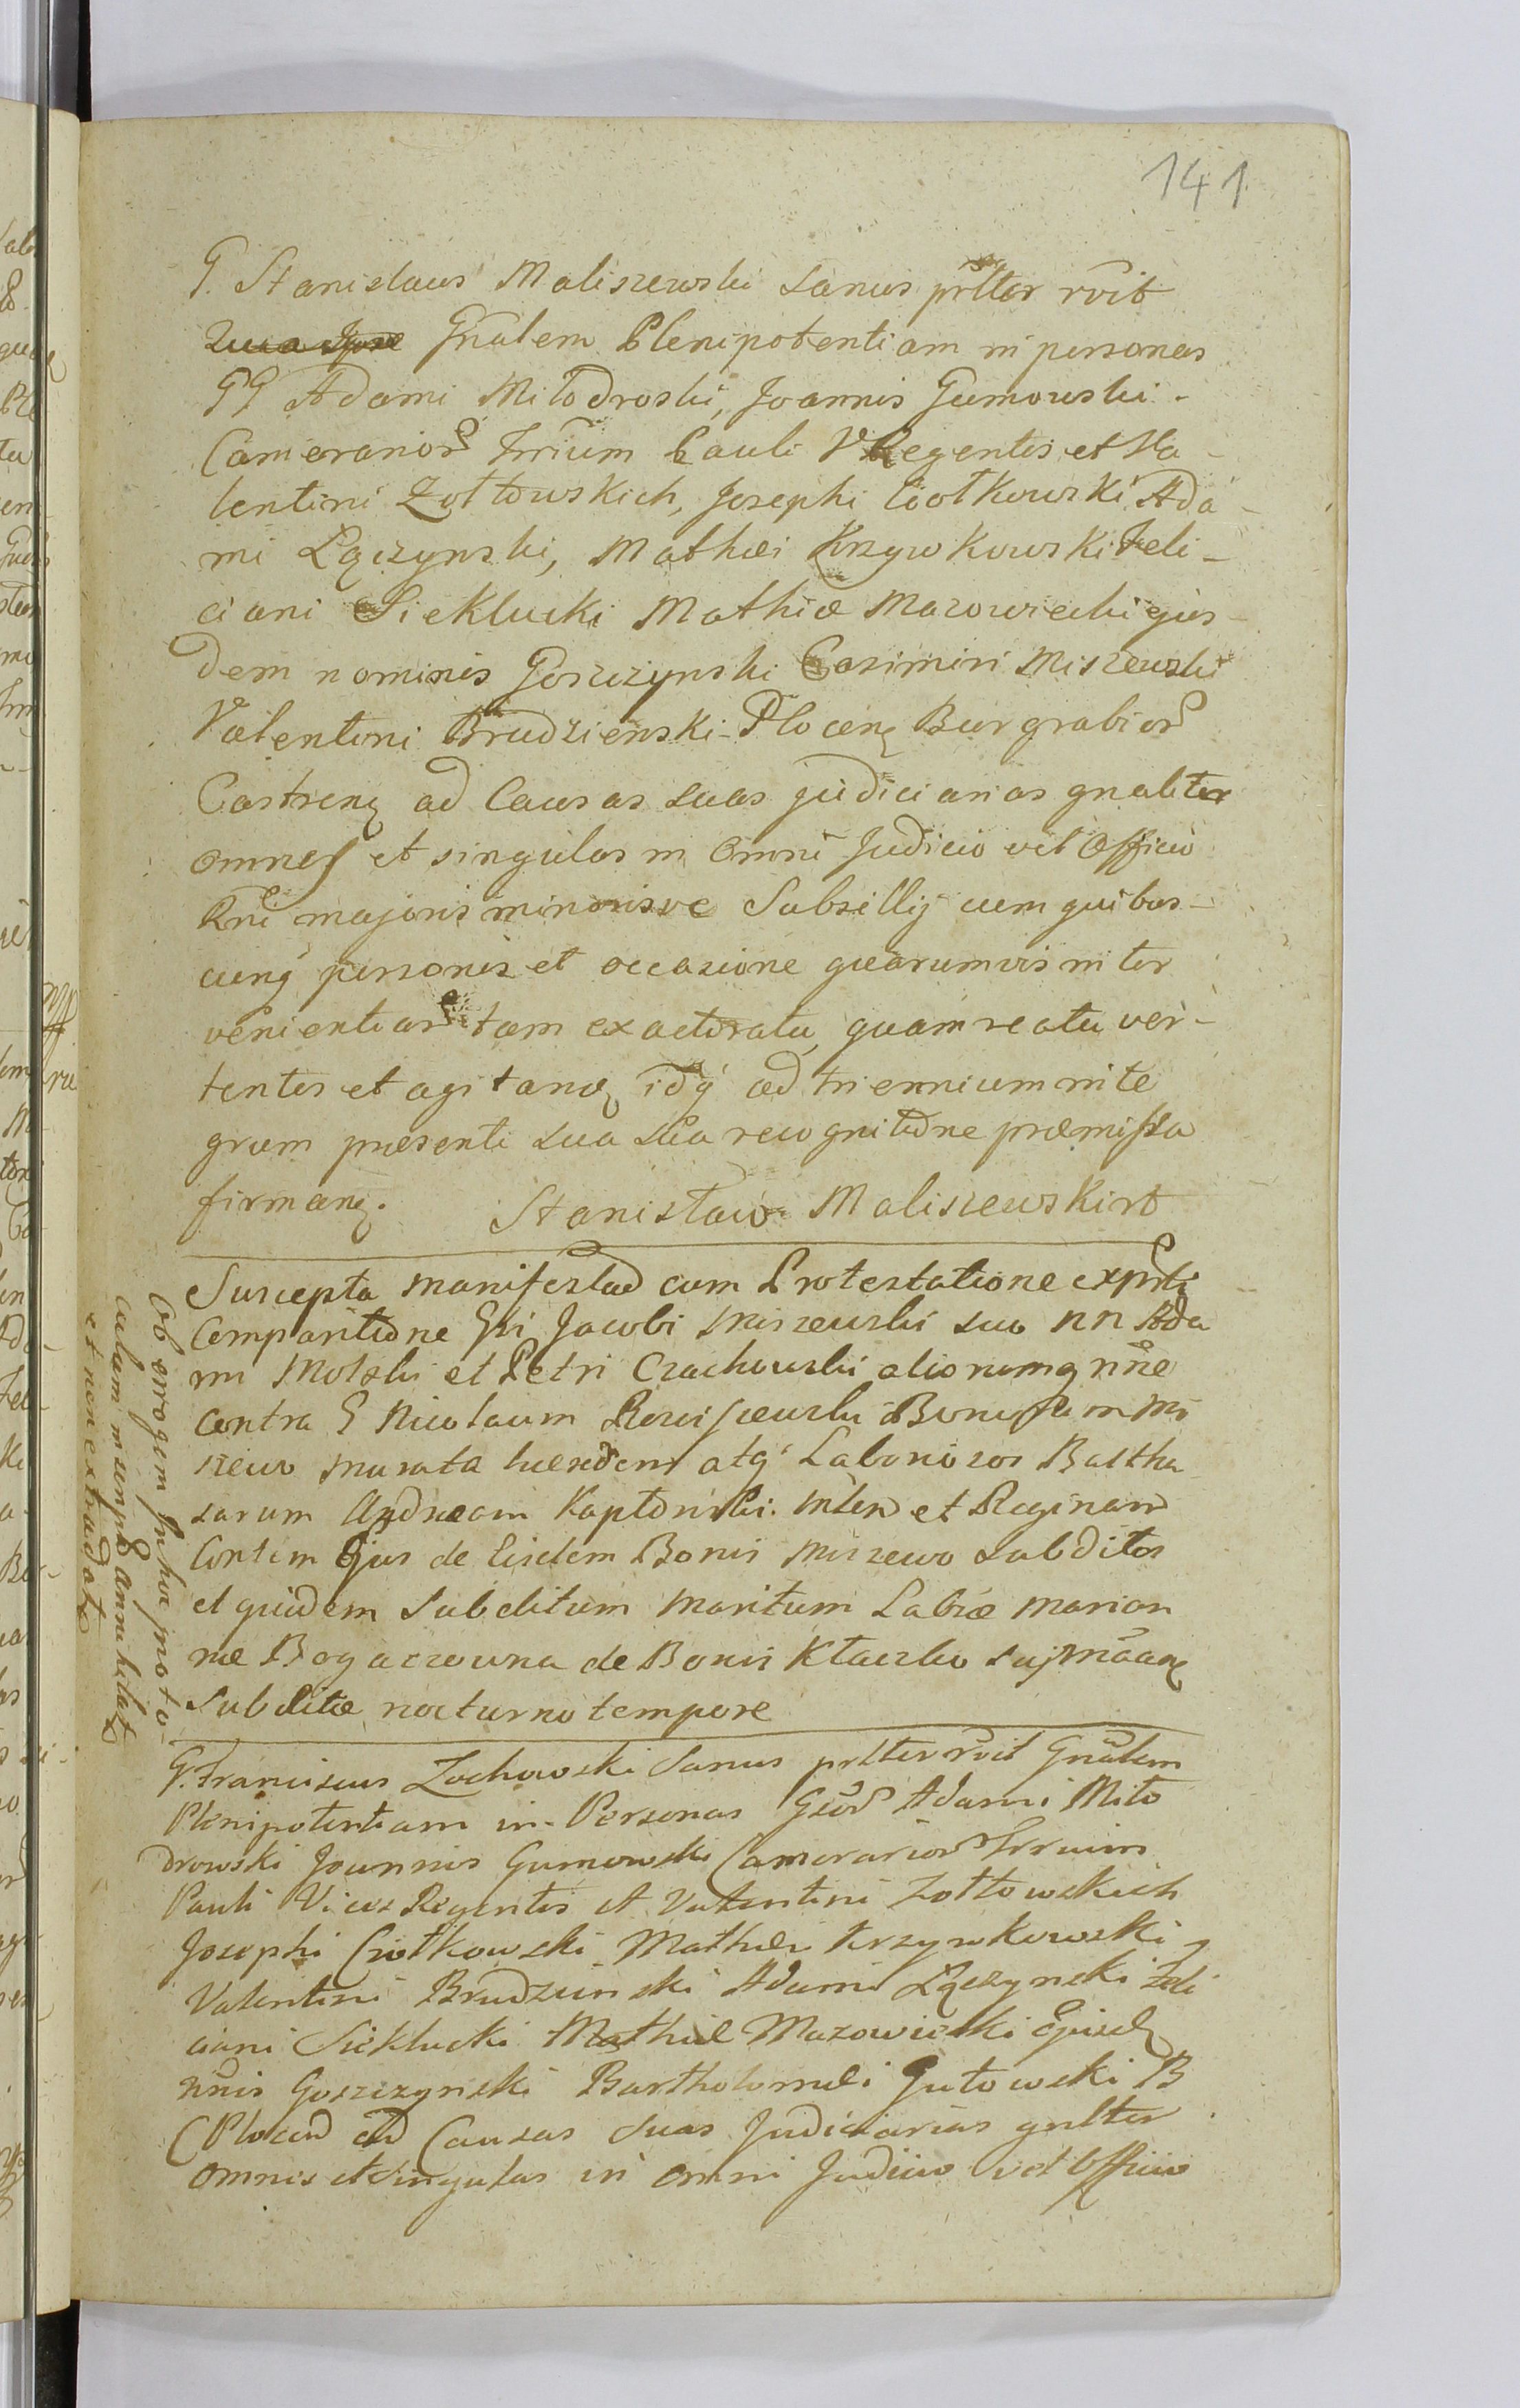 141
G. Stanislaus Maliszewski sanus prltter rvit
Gnalem Plenipotentiam in personas
GG Adami Miłodroski, Joannis Gumowski.
Camerarior Trrium Pauli VRegentis et Va-
lentini Zołtowskich, Josephi Ciołkowski Ada-
mi Łączynski, Mathæi Krzywkowski Feli-
ciani Sieklucki Mathiæ Mazowiecki ejus-
dem nominis Goszczynski Casimiri Miszewski
Valentini Brudzienski Plocen Burgrabior
Castren ad Causas suas judiciarias gnaliter
omnes et singulas in Omni Judicio vel Officio
Rni majoris minorisve Subsellij cum quibus-
cunq personis et occasione quarumvis inter
venientiar tam ex actoratu, quam reatu ver-
tentes et agitan, idq ad triennium inte
grum præsenti sua recognitione præmissa
firman. Stanisław Maliszewski rt
Suscepta Manifestao cum Protestatione exprti
Comparitione Gsi Jacobi Miszewski suo nn Ada
mi Molski et Petri Czachowski aliorumq nne
contra G Nicolaum Bonor in Mi
szewo Murata hærdem atq Laboriosos Baltha
sarum Andream Kapturski. et Reginam
Contem Ejus de Eisdem Bonis Miszewo Subditos
et quidem Subditum Maritum Labræ Marian
næ Bogaczowna de Bonis Ktaczko
Subditæ nocturno tempore
Ob erro gem In hoc proto-
culum inscripta annihilat
et non extradat
G. Franciscus Zochowski Sanus prltter rvit Gnalem
Plenipotentiam in Personas Gsor Adami Miło
drowski Joannis Gumowski Camerarior Trrium
Pauli Vices Regentis et Valentini Zołtowskich
Josephi Ciołkowski Mathæi Krzywkowski
Valentini Brudzinski Adami Łączynski Feli
ciani Sieklucki Mathiæ Mazowiecki Ejusd
nnis Goszczynski Bartholomæi Gutowski B
C Plocen ad Causas Suas Judiciarias gnltter
omnes et singulas in omni Judicio vel Officio